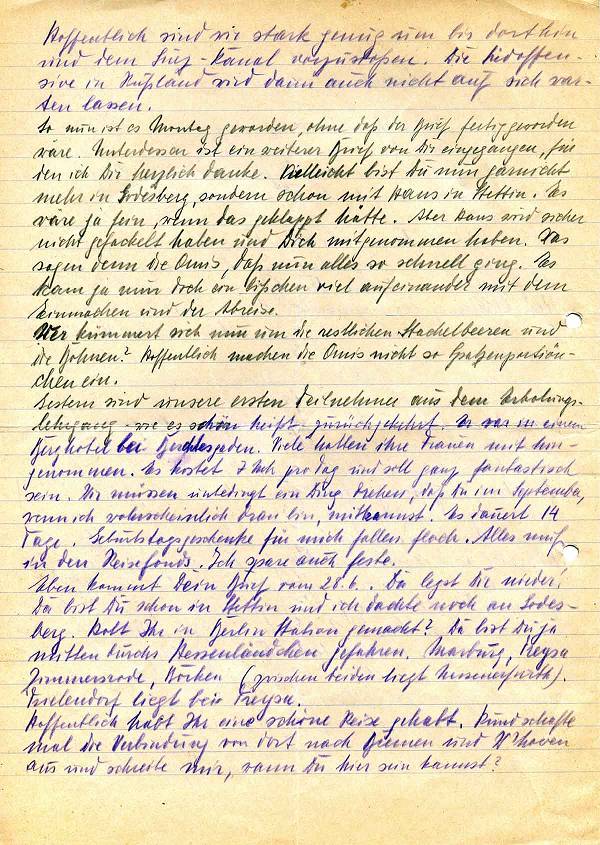 Hoffentlich sind sie stark genug um bis dorthin
und dem Suez-Kanal vorzustoßen. Die Südoffen-
sive in Rußland wird dann auch nicht auf sich war-
ten lassen.
So nun ist es Montag geworden, ohne daß der Brief fertig geworden
wäre. Unterdessen ist ein weiterer Brief von Dir eingegangen, für
den ich Dir herzlich danke. Vielleicht bist Du nun garnicht
mehr in Godesberg, sondern schon mit Hans in Stettin. Es
wäre ja fein, wenn das geklappt hätte. Aber Hans wird sicher
nicht gefackelt haben und Dich mitgenommen haben. Was
sagen denn die Omis, daß nun alles so schnell ging. Es
kam ja nun doch ein bißchen viel aufeinander mit dem
Einmachen und der Abreise.
Wer kümmert sich nun um die restlichen Stachelbeeren und
die Bohnen? Hoffentlich machen die Omis nicht so Spatzenportiön-
chen ein.
Gestern sind unsere ersten Teilnehmer aus dem Erholungs-
lehrgang wie es schön heißt zurückgekehrt. Er war in einem
Berghotel bei Berchtesgaden. Viele hatten ihre Frauen mit hin-
genommen. Es kostet 7 Mk pro Tag und soll ganz fantastisch
sein. Wir müssen unbedingt ein Ding drehen, daß Du im September,
wenn ich wahrscheinlich dran bin, mitkannst. Es dauert 14
Tage. Geburtstagsgeschenke für mich fallen flach. Alles muß
in den Reisefonds. Ich spare auch feste.
Eben kommt Dein Brief vom 28.6. Da legst Dich nieder!
Da bist Du schon in Stettin und ich dachte noch an Godes-
berg. Habt Ihr in Berlin Station gemacht? Da bist Du ja
mitten durchs Hessenländchen gefahren. Marburg, Treysa
Zimmersrode, Borken (zwischen beiden liegt
liegt bei Treysa.
Hoffentlich habt Ihr eine schöne Reise gehabt. Kundschafte
mal die Verbindung von dort nach Bremen und W'haven
aus und schreibe mir, wann Du hier sein kannst?